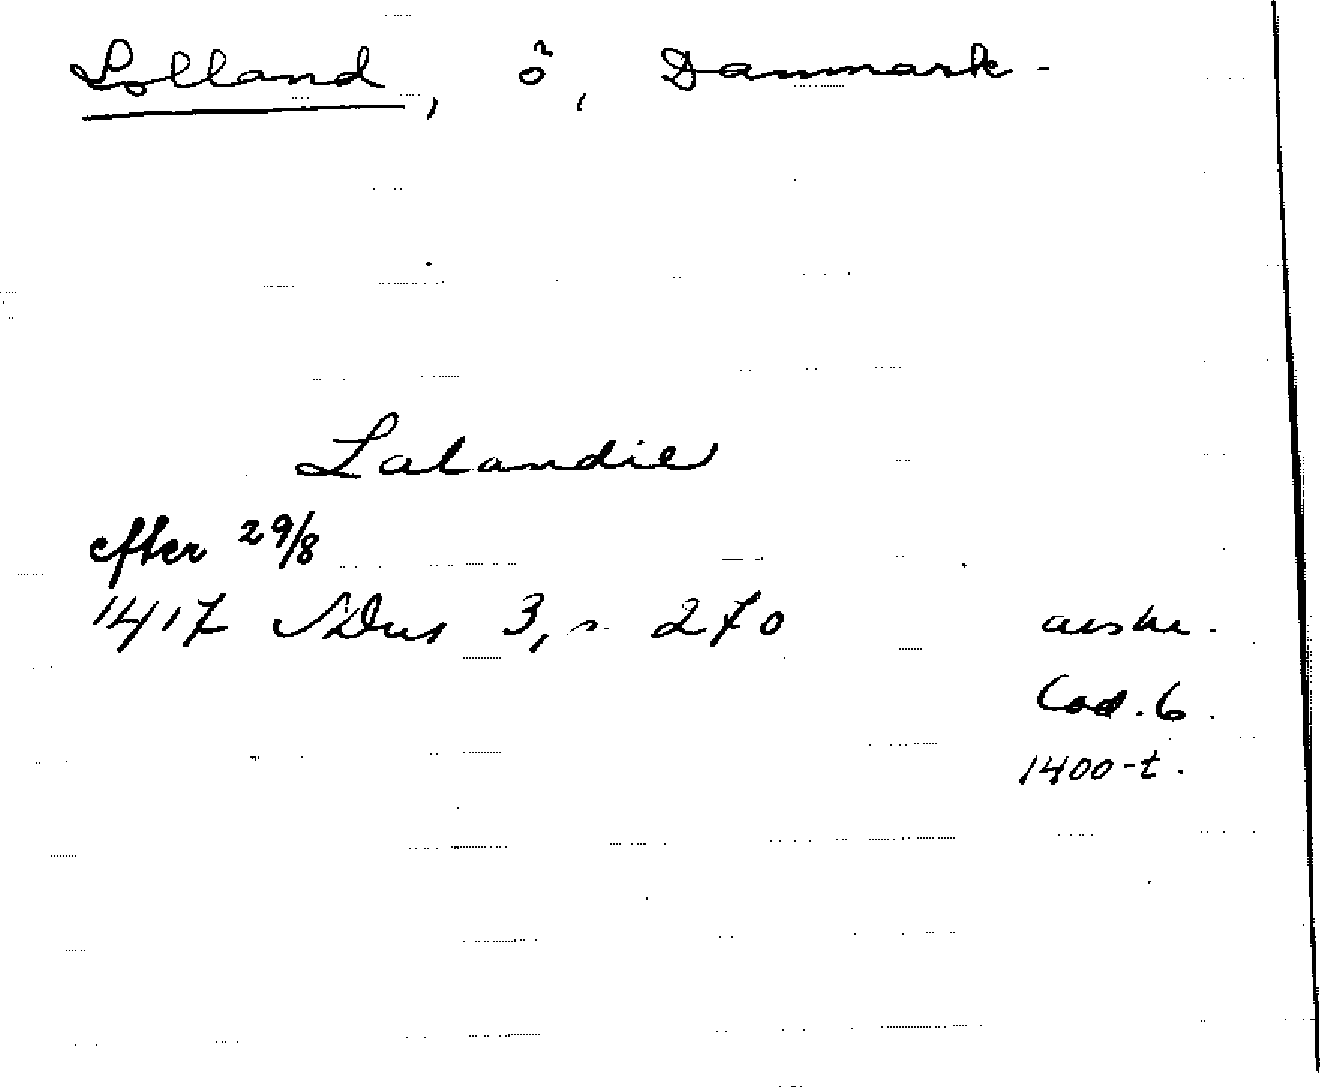 Lolland, ö, Danmark -
Lalandie
efter 29/8
1417 SDns 3, s 270 avskr.
Cod. 6.
1400-t.